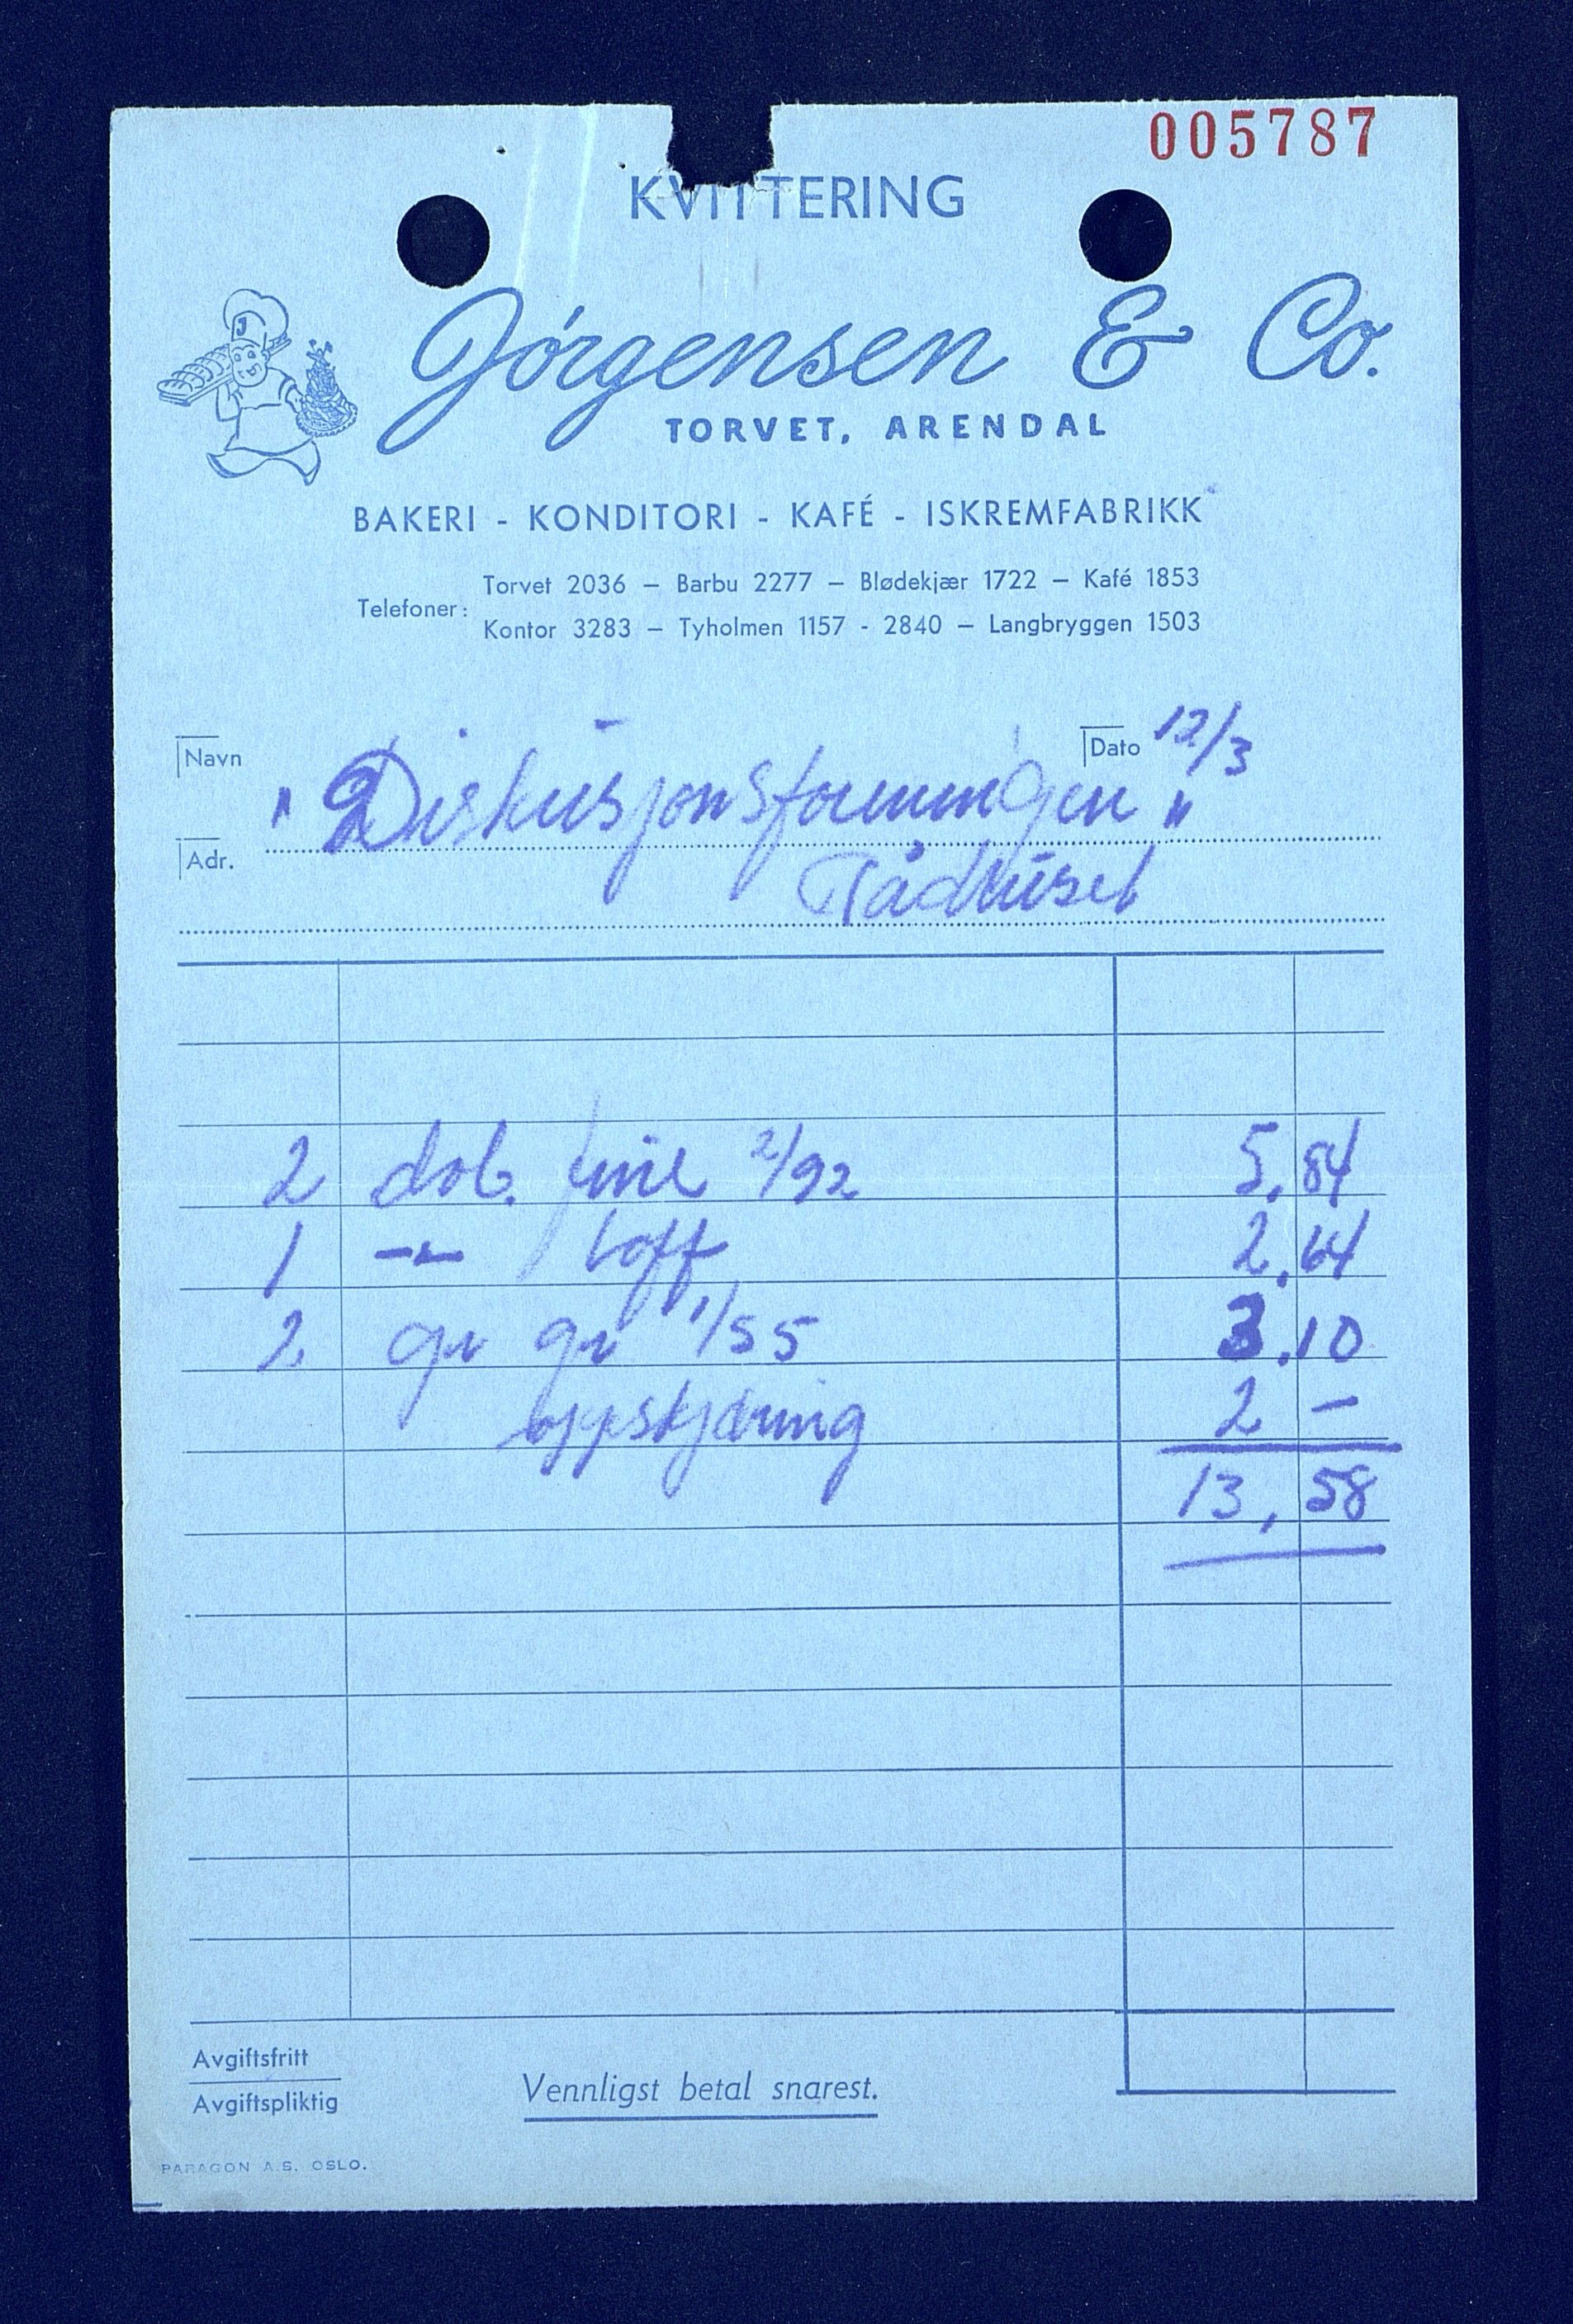 005787
KVITTERING
J
Jørgensen & Co.
TORVET, ARENDAL
BAKERI - KONDITORI - KAFÉ - ISKREMFABRIKK
Telefoner:
Torvet 2036 — Barbu 2277 — Blødekjær 1722 — Kafé 1853
Kontor 3283 — Tyholmen 1157 - 2840 — Langbryggen 1503
Navn
Dato 12/3
"Diskusjonsforeningen"
Adr.
Rådhuset
2 dob. fine 2/92 5,84
1 -"- loff 2,64
2 gr gr 1/55 3.10
oppskjæring 2 –
13,58
Avgiftsfritt
Avgiftspliktig
Vennligst betal snarest.
PARAGON A.S. OSLO.